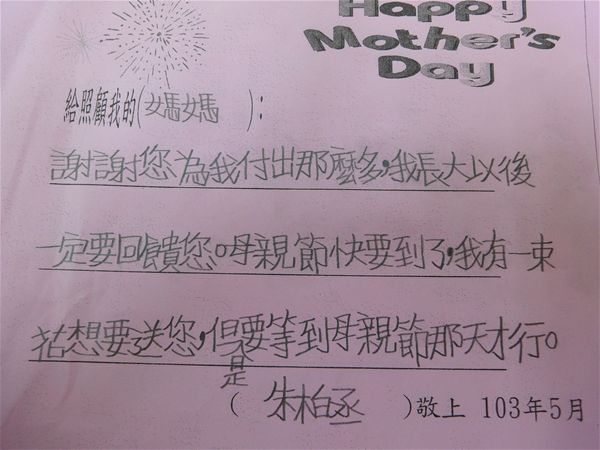 Happy
Mother's
Day
給照顧我的(媽媽 ):
謝謝您為我付出那麼多,我長大以後
一定要回饋您。母親節快要到了,我有一束
花想要送您,但是要等到母親節那天才行。
( 朱柏丞 )敬上 103年5月